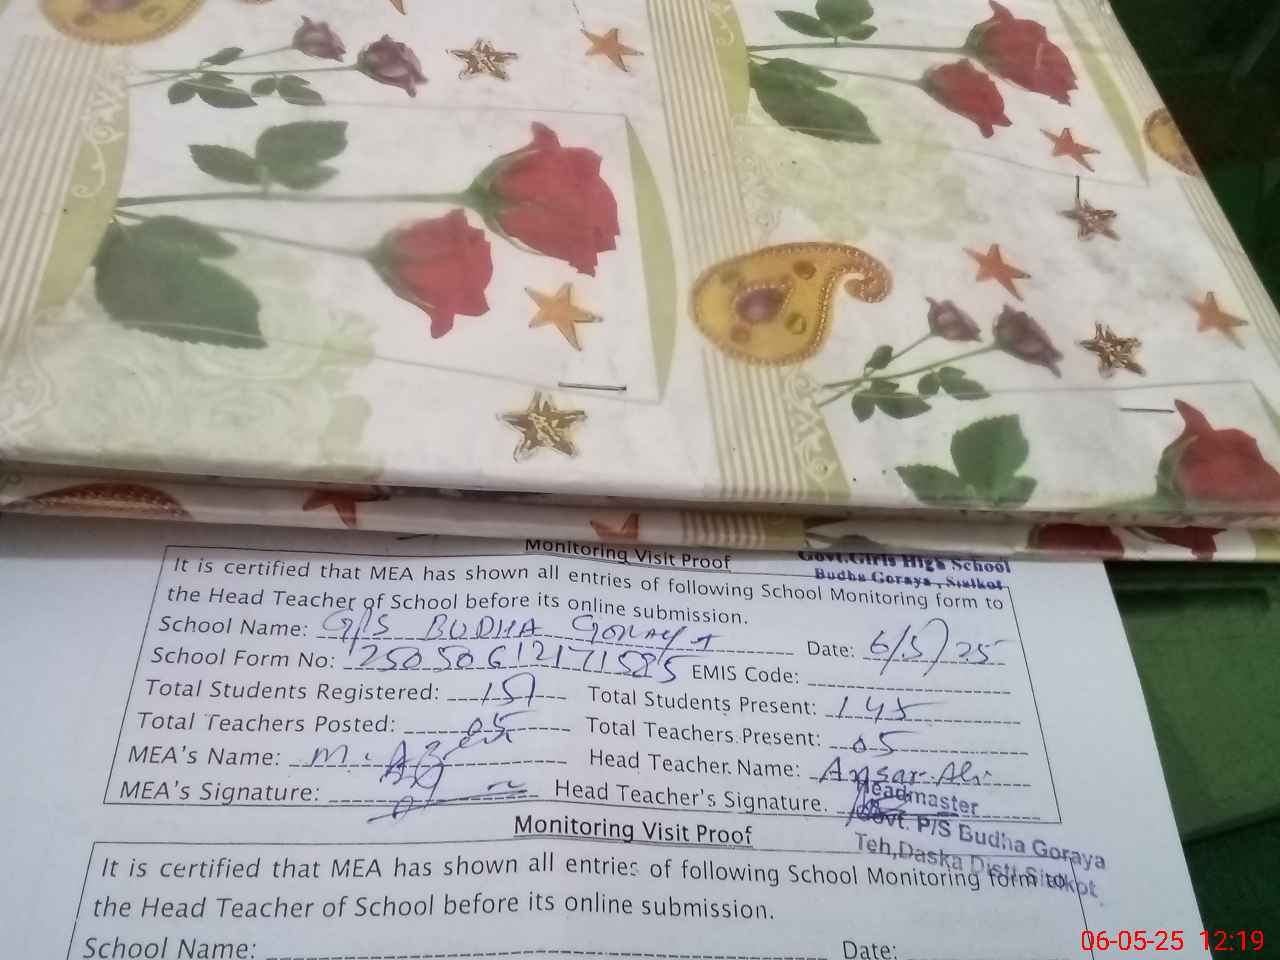 Monitoring Visit Proof
Govt.Girls High School
Budha Goraya, Sialkot
It is certified that MEA has shown all entries of following School Monitoring form to
the Head Teacher of School before its online submission.
School Name: G/S BUDHA GORAYA Date: 6/5/25
School Form No: EMIS Code:
Total Students Registered: 151 Total Students Present: 145
Total Teachers Posted: 05 Total Teachers Present: 05
MEA's Name: M. Head Teacher Name: Ansar Ali
MEA's Signature: Head Teacher's Signature.
Headmaster
Govt. P/S Budha Goraya
Teh,Daska Distt Sialkot
Monitoring Visit Proof
It is certified that MEA has shown all entries of following School Monitoring form to
the Head Teacher of School before its online submission.
School Name: Date:
06-05-25 12:19